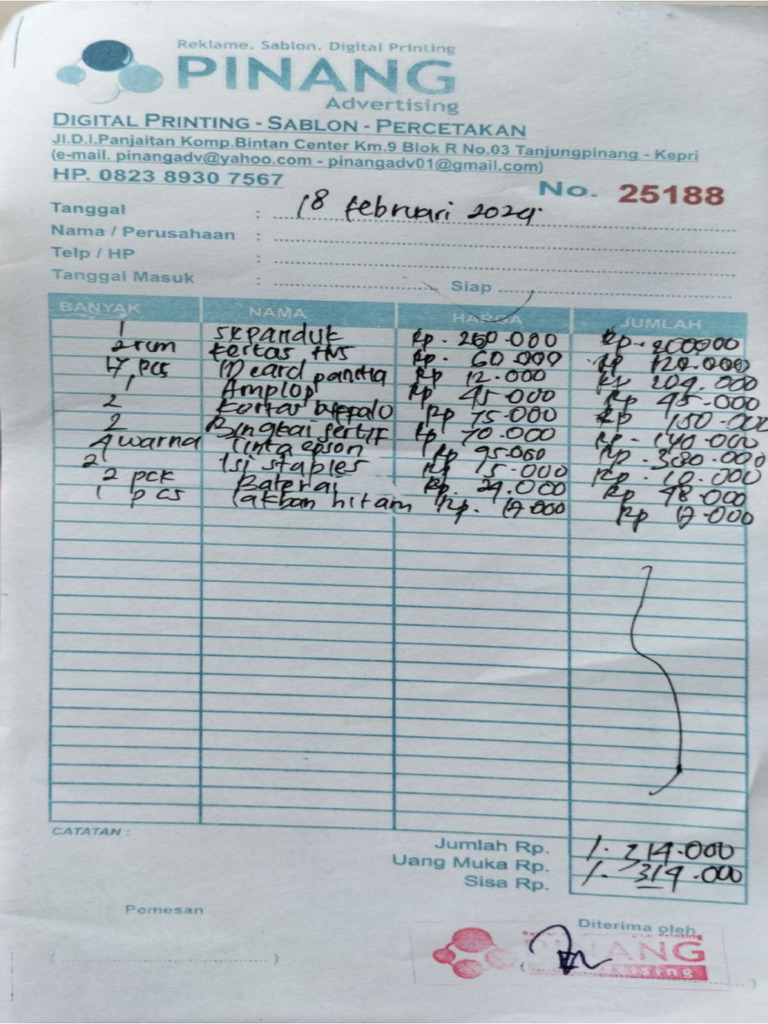 Reklame, Sablon, Digital Printing
PINANG
Advertising
DIGITAL PRINTING - SABLON - PERCETAKAN
Jl.D.I.Panjaitan Komp.Bintan Center Km.9 Blok R No.03 Tanjungpinang - Kepri
(e-mail. pinangadv@yahoo.com - pinangadv01@gmail.com)
HP. 0823 8930 7567
No. 25188
Tanggal : 18 februari 2024.
Nama / Perusahaan :
Telp / HP :
Tanggal Masuk : Siap
BANYAK NAMA HARGA JUMLAH
1 Spanduk Rp. 200.000 Rp. 200000
2 rim kertas HVS Rp. 60.000 Rp 120.000
17 pcs ID card panitia Rp 12.000 Rp 204.000
1 Amplop Rp 45.000 Rp 45.000
2 kertas buffalo Rp 75.000 Rp 150.000
2 Bingkai sertif Rp 70.000 Rp. 140.000
4 warna tinta epson Rp 95.000 Rp. 380.000
2 Isi staples Rp 5.000 Rp. 10.000
2 pck Baterai Rp. 24.000 Rp 48.000
1 pcs lakban hitam Rp. 17.000 Rp 17.000
CATATAN :
Jumlah Rp. 1.314.000
Uang Muka Rp. 1.314.000
Sisa Rp.
Pemesan
Diterima oleh
PINANG